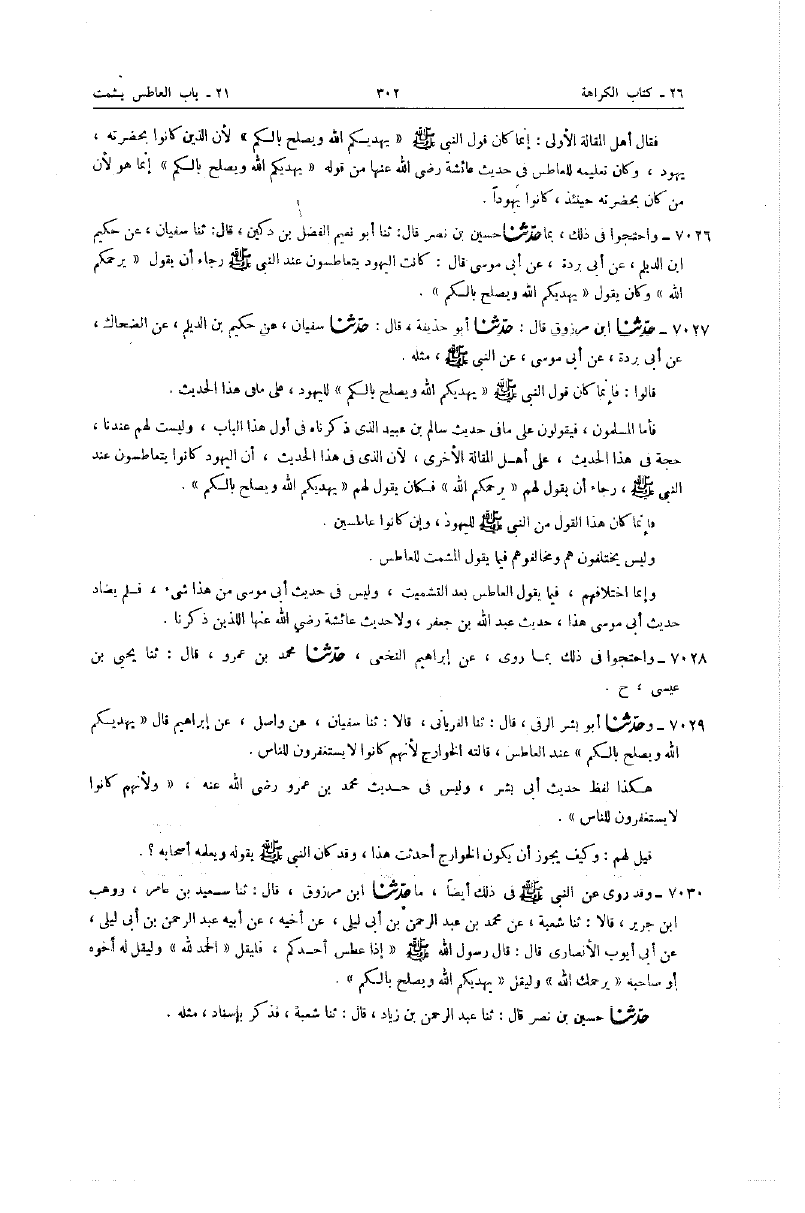 ٢٦ ـ كتاب الكراهة ٣٠٢ ٢١ ـ باب العاطس يشمت
فقال أهل المقالة الأولى : إنما كان قول النبى ﷺ « يهديكم الله ويصلح بالكم » لأن الذين كانوا بحضرته ،
يهود ، وكان تعليمه للعاطس فى حديث عائشة رضى الله عنها من قوله « يهديكم الله ويصلح بالكم » إنما هو لأن
من كان بحضرته حينئذ ، كانوا يهوداً .
٧٠٢٦ ـ واحتجوا فى ذلك ، بما حدّثنا حسين بن نصر قال: ثنا أبو نعيم الفضل بن دكين ، قال: ثنا سفيان ، عن حكيم
ابن الديلم ، عن أبى بردة ، عن أبى موسى قال : كانت اليهود يتعاطسون عند النبى ﷺ رجاء أن يقول « يرحمكم
الله » وكان يقول « يهديكم الله ويصلح بالكم » .
٧٠٢٧ ـ حدّثنا ابن مرزوق قال : حدّثنا أبو حذيفة ، قال : حدّثنا سفيان ، عن حكيم بن الديلم ، عن الضحاك ،
عن أبى بردة ، عن أبى موسى ، عن النبى ﷺ ، مثله .
قالوا : فإنما كان قول النبى ﷺ « يهديكم الله ويصلح بالكم » لليهود ، على مافى هذا الحديث .
فأما المسلمون ، فيقولون على مافى حديث سالم بن عبيد الذى ذكرناه فى أول هذا الباب ، وليست لهم عندنا ،
حجة فى هذا الحديث ، على أهل المقالة الأخرى ، لأن الذى فى هذا الحديث ، أن اليهود كانوا يتعاطسون عند
النبى ﷺ ، رجاء أن يقول لهم « يرحمكم الله » فكان يقول لهم « يهديكم الله ويصلح بالكم » .
فإنما كان هذا القول من النبى ﷺ لليهود ، وإن كانوا عاطسين .
وليس يختلفون هم ومخالفوهم فيما يقول المشمت للعاطس .
وإنما اختلافهم ، فيما يقول العاطس بعد التشميت ، وليس فى حديث أبى موسى من هذا شىء ، فلم يضاد
حديث أبى موسى هذا ، حديث عبد الله بن جعفر ، ولاحديث عائشة رضى الله عنها اللذين ذكرنا .
٧٠٢٨ ـ واحتجوا فى ذلك بما روى ، عن إبراهيم النخعى ، حدّثنا محمد بن عمرو ، قال : ثنا يحيى بن
عيسى ، ح .
٧٠٢٩ ـ وحدّثنا أبو بشر الرقى ، قال : ثنا الفريابى ، قالا : ثنا سفيان ، عن واصل ، عن إبراهيم قال « يهديكم
الله ويصلح بالكم » عند العاطس ، قالته الخوارج لأنهم كانوا لايستغفرون للناس .
هكذا لفظ حديث أبى بشر ، وليس فى حديث محمد بن عمرو رضى الله عنه ، « ولأنهم كانوا
لايستغفرون للناس » .
قيل لهم : وكيف يجوز أن يكون الخوارج أحدثت هذا ، وقد كان النبى ﷺ يقوله ويعلمه أصحابه ؟ .
٧٠٣٠ ـ وقد روى عن النبى ﷺ فى ذلك أيضاً ، ما حدّثنا ابن مرزوق ، قال : ثنا سعيد بن عامر ، ووهب
ابن جرير ، قالا : ثنا شعبة ، عن محمد بن عبد الرحمن بن أبى ليلى ، عن أخيه ، عن أبيه عبد الرحمن بن أبى ليلى ،
عن أبى أيوب الأنصارى قال : قال رسول الله ﷺ « إذا عطس أحدكم ، فليقل « الحمد لله » وليقل له أخوه
أو صاحبه « يرحمك الله » وليقل « يهديكم الله ويصلح بالكم » .
حدّثنا حسين بن نصر قال : ثنا عبد الرحمن بن زياد ، قال : ثنا شعبة ، فذكر بإسناد ، مثله .